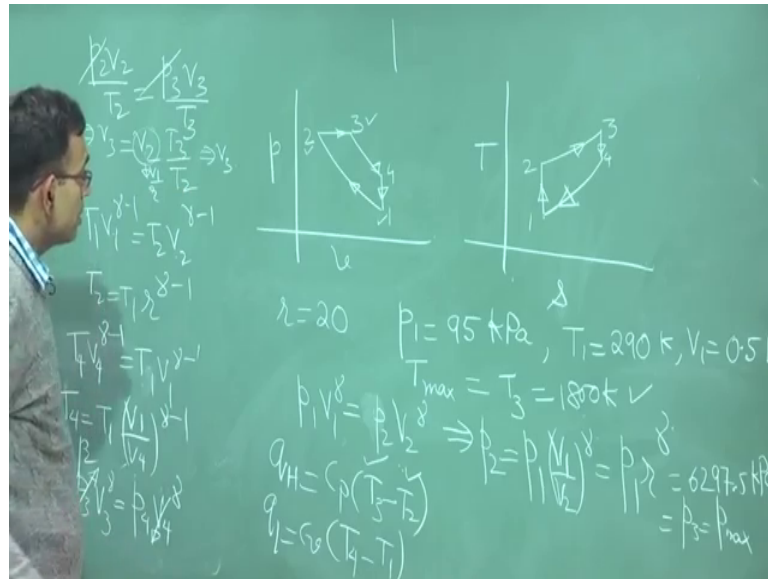 p₂V₂/T₂ = p₃V₃/T₃
⇒ V₃ = (V₂) T₃/T₂ ⇒ V₃
V₁/r
T₁V₁^γ-1 = T₂V₂^γ-1
T₂ = T₁ r^γ-1
T₄V₄^γ-1 = T₁V₁^γ-1
T₄ = T₁ (V₁/V₄)^γ-1
p₂
p₃V₃^γ = p₄V₄^γ
p
2
3
4
1
v
T
2
3
4
1
s
r = 20
p₁ = 95 kPa, T₁ = 290 K, V₁ = 0.5
T max = T₃ = 1800 K ✓
p₁V₁^γ = p₂V₂^γ ⇒ p₂ = p₁ (V₁/V₂)^γ = p₁ r^γ = 6297.5 kP
= p₃ = p max
q H = Cp (T₃ – T₂)
q L = Cv (T₄ – T₁)